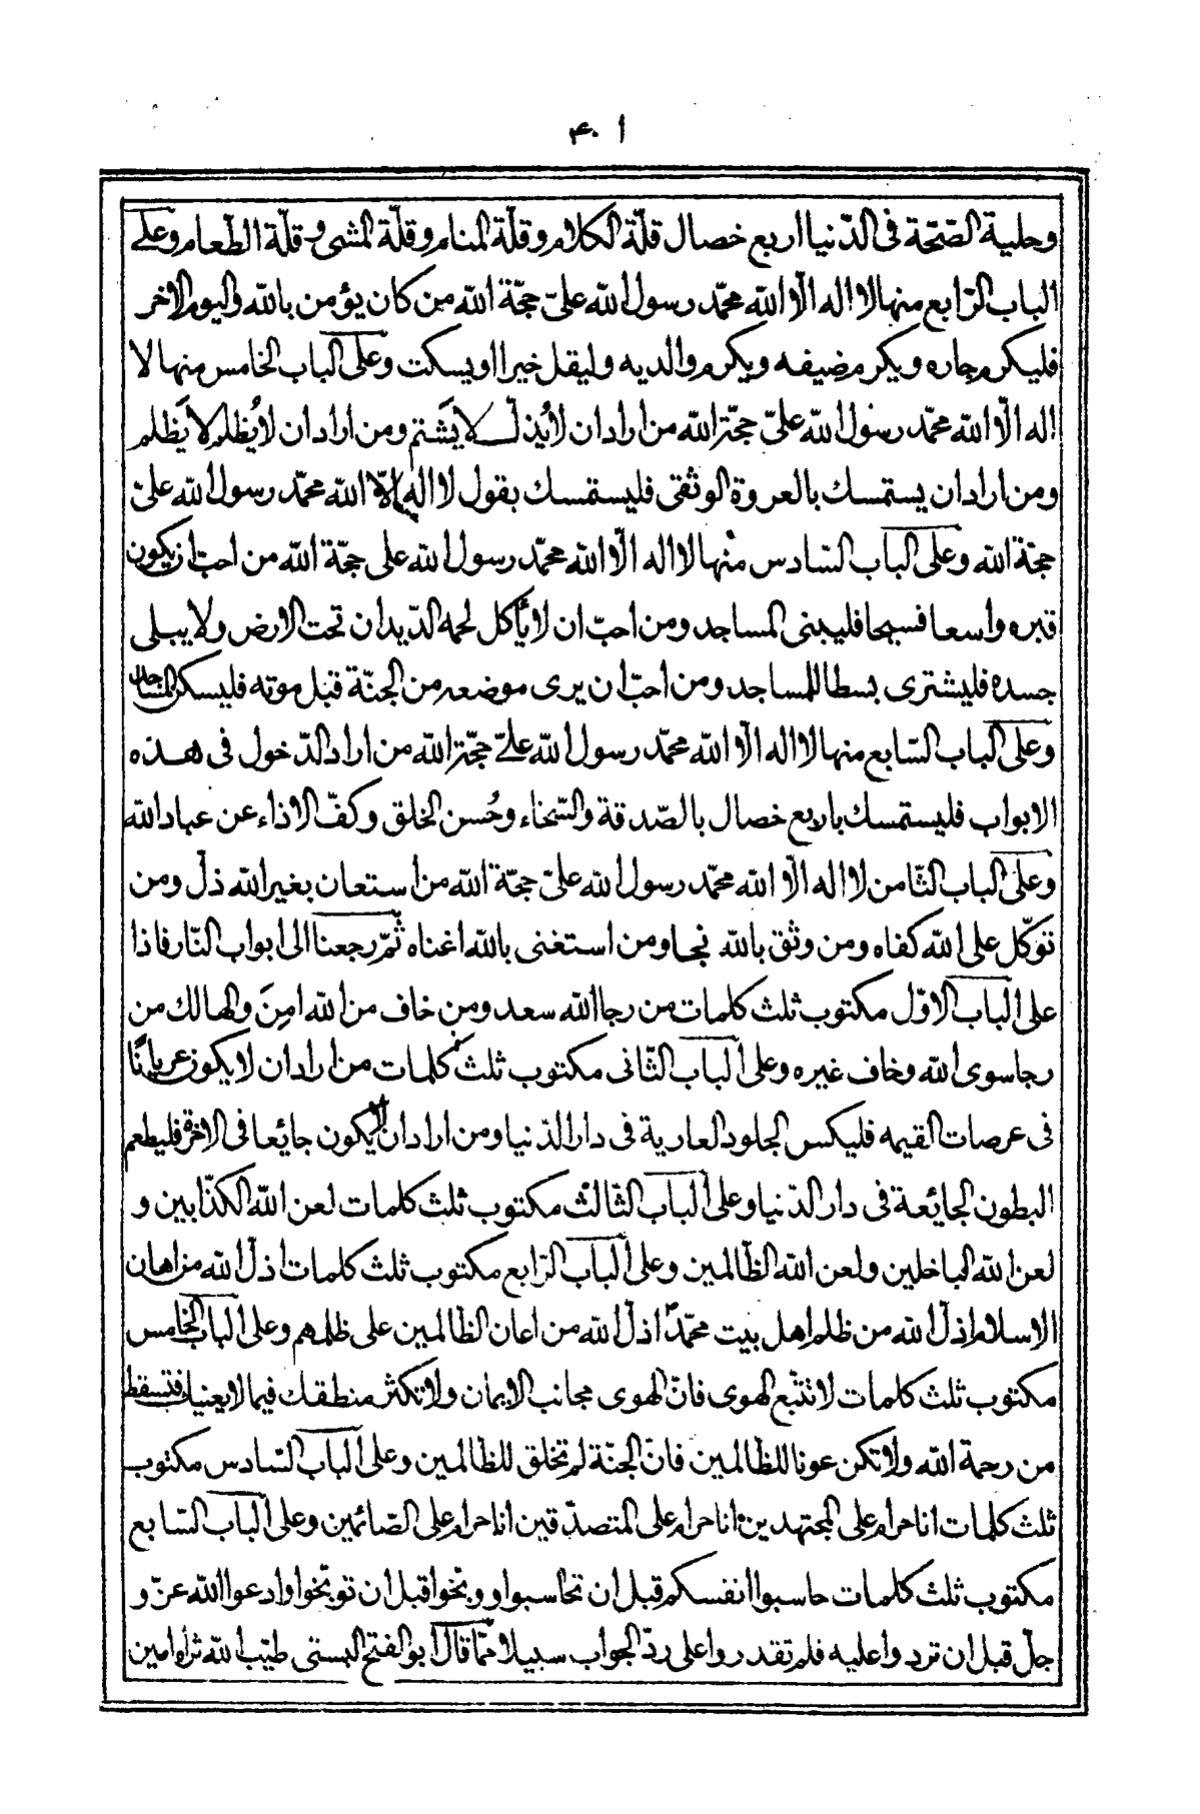 ٤٠١
وحلية الصّحّة فى الدّنيا اربع خصال قلّة الكلام وقلّة المنام وقلّة المشى وقلّة الطّعام وعلى
الباب الرّابع منها لا اله الّا الله محمّد رسول الله علىّ حجّة الله من كان يؤمن بالله واليوم الاخر
فليكرم جاره ويكرم ضيفه ويكرم والديه وليقل خيرا او يسكت وعلى الباب الخامس منها لا
اله الّا الله محمّد رسول الله علىّ حجّة الله من اراد ان لا يُذلّ لا يَشتم ومن اراد ان لا يُظلم لا يَظلم
ومن اراد ان يستمسك بالعروة الوثقى فليستمسك بقول لا اله الّا الله محمّد رسول الله علىّ
حجّة الله وعلى الباب السّادس منها لا اله الّا الله محمّد رسول الله على حجّة الله من احبّ ان يكون
قبره واسعا فسيحا فليبنى المساجد ومن احبّ ان لا يأكل لحمه الدّيدان تحت الارض ولا يبلى
جسده فليشترى بسطا للمساجد ومن احبّ ان يرى موضعه من الجنّة قبل موته فليسكن المساجد
وعلى الباب السّابع منها لا اله الّا الله محمّد رسول الله علىّ حجّة الله من اراد الدّخول فى هذه
الابواب فليستمسك باربع خصال بالصّدقة والسّخاء وحُسن الخلق وكفّ الاذاء عن عباد الله
وعلى الباب الثّامن لا اله الّا الله محمّد رسول الله علىّ حجّة الله من استعان بغير الله ذلّ ومن
توكّل على الله كفاه ومن وثق بالله نجا ومن استغنى بالله اغناه ثمّ رجعنا الى ابواب النّار فاذا
على الباب الاوّل مكتوب ثلث كلمات من رجا الله سعد ومن خاف من الله امِنَ والهالك من
رجا سوى الله وخاف غيره وعلى الباب الثّانى مكتوب ثلث كلمات من اراد ان لا يكون عريانًا
فى عرصات القيمه فليكس الجلود العارية فى دار الدّنيا ومن اراد ان لا يكون جائعا فى الاخرة فليطعم
البطون الجائعة فى دار الدّنيا وعلى الباب الثّالث مكتوب ثلث كلمات لعن الله الكذّابين و
لعن الله الباخلين ولعن الله الظّالمين وعلى الباب الرّابع مكتوب ثلث كلمات اذلّ الله من اهان
الاسلام اذلّ الله من ظلم اهل بيت محمّد اذلّ الله من اعان الظّالمين على ظلمهم وعلى الباب الخامس
مكتوب ثلث كلمات لا تتّبع الهوى فانّ الهوى مجانب الايمان ولا تكثر منطقك فيما لا يعنيك فتسقط
من رحمة الله ولا تكن عونا للظّالمين فانّ الجنّة لم تخلق للظّالمين وعلى الباب السّادس مكتوب
ثلث كلمات انا حرام على المجتهدين انا حرام على المتصدّقين انا حرام على الصّائمين وعلى الباب السّابع
مكتوب ثلث كلمات حاسبوا انفسكم قبل ان تحاسبوا ووبّخوا قبل ان توبّخوا وادعوا الله عزّ و
جلّ قبل ان تردوا عليه فلم تقدروا على ردّ الجواب سبيلا ممّا قال ابو الفتح البستى طيّب الله ثراه امين